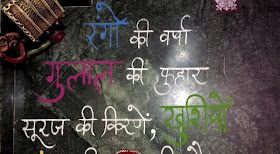 रंगो की वर्षा
गुलाल की फुहार
सूरज की किरणें, खुशियों